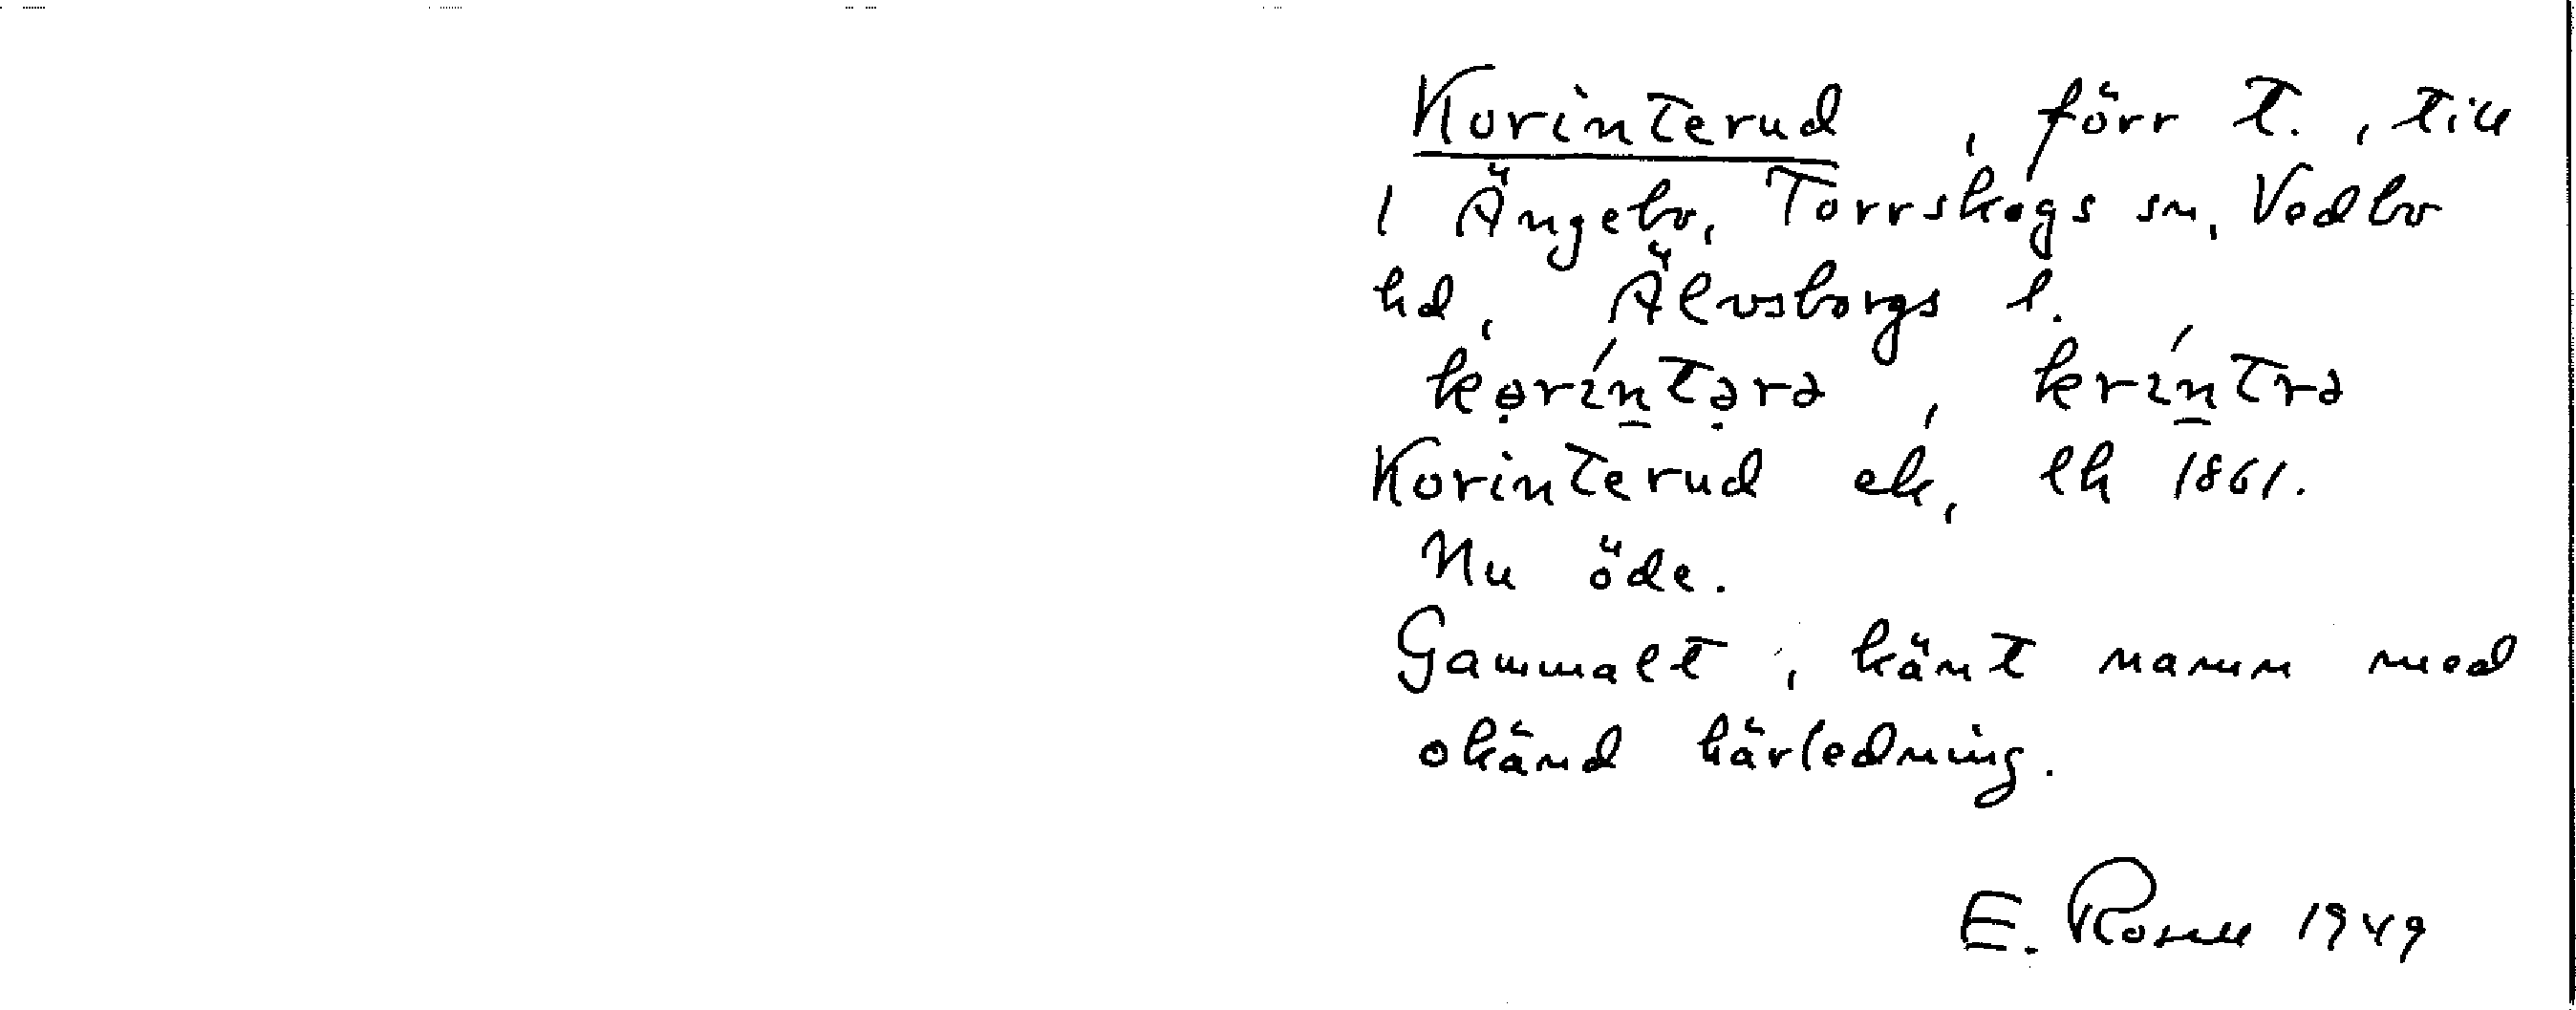 Korinterud, förr t., till
1 Ängebo, Torrskogs sn, Vedbo
hd, Älvsborgs l.
kə̣rín̲tə̣rə, krín̲trə
Korinterud ek, lh 1861.
Nu öde.
Gammalt, känt namn med
okänd härledning.
E. Rosell 1949